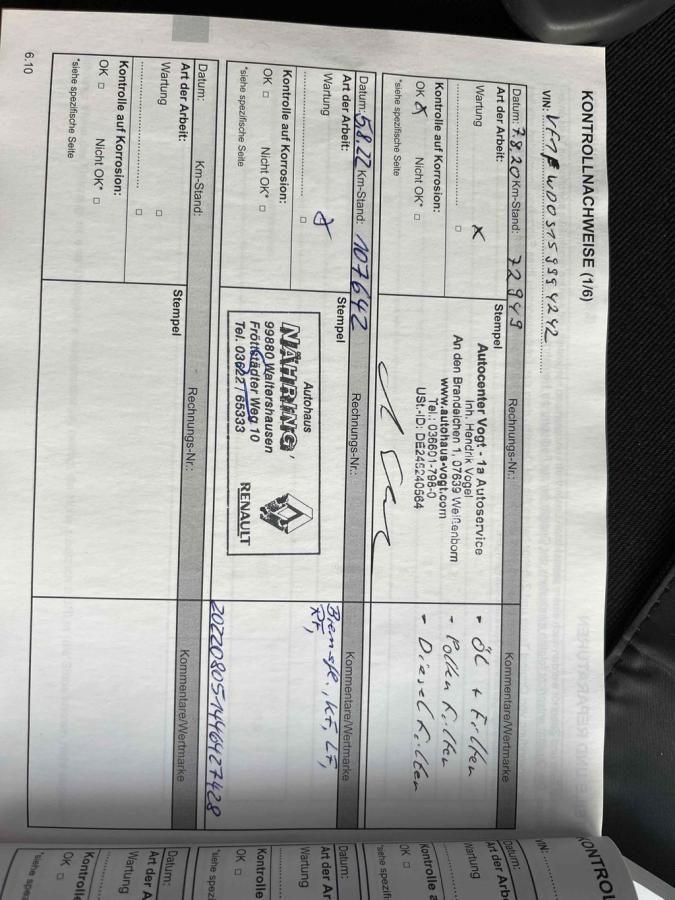 KONTROLLNACHWEISE (1/6)
Datum: 7.8.20 Km-Stand: 72949
Rechnungs-Nr.:
Kommentare/Wertmarke
Art der Arbeit:
Wartung x
Kontrolle auf Korrosion:
OK x Nicht OK* □
*siehe spezifische Seite
Stempel
Autocenter Vogt - 1a Autoservice
Inh. Hendrik Vogel
An den Brandeichen 1, 07639 Weißenborn
Tel.: 036601-798-0
www.autohaus-vogt.com
USt.-ID: DE245240564
- Öl + Filter
- Pollen Filter
- Diesel Filter
Datum: 5.8.22 Km-Stand: 107642
Rechnungs-Nr.:
Kommentare/Wertmarke
Art der Arbeit:
Wartung x
Kontrolle auf Korrosion:
OK □ Nicht OK* □
*siehe spezifische Seite
Stempel
Autohaus
NÄHRING
99880 Waltershausen
Fröttstädter Weg 10
Tel. 03622 / 65333
RENAULT
Bremsfl., KF, LF,
20220805144641427428
Datum: Km-Stand:
Rechnungs-Nr.:
Kommentare/Wertmarke
Art der Arbeit:
Wartung □
Kontrolle auf Korrosion:
OK □ Nicht OK* □
*siehe spezifische Seite
Stempel
6.10
KONTROL
VIN:
Datum:
Art der Arb
Wartung
Kontrolle a
OK □
*siehe spezifi
Datum:
Art der Ar
Wartung
Kontrolle
OK □
*siehe spezi
Datum:
Art der A
Wartung
Kontrol
OK □
*siehe spez